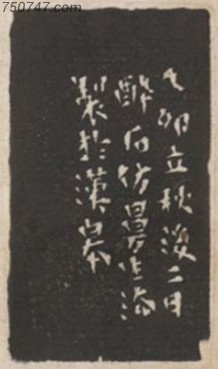 750747.com
乙卯立秋後二日
醉石仿曼生法
製於漢皋